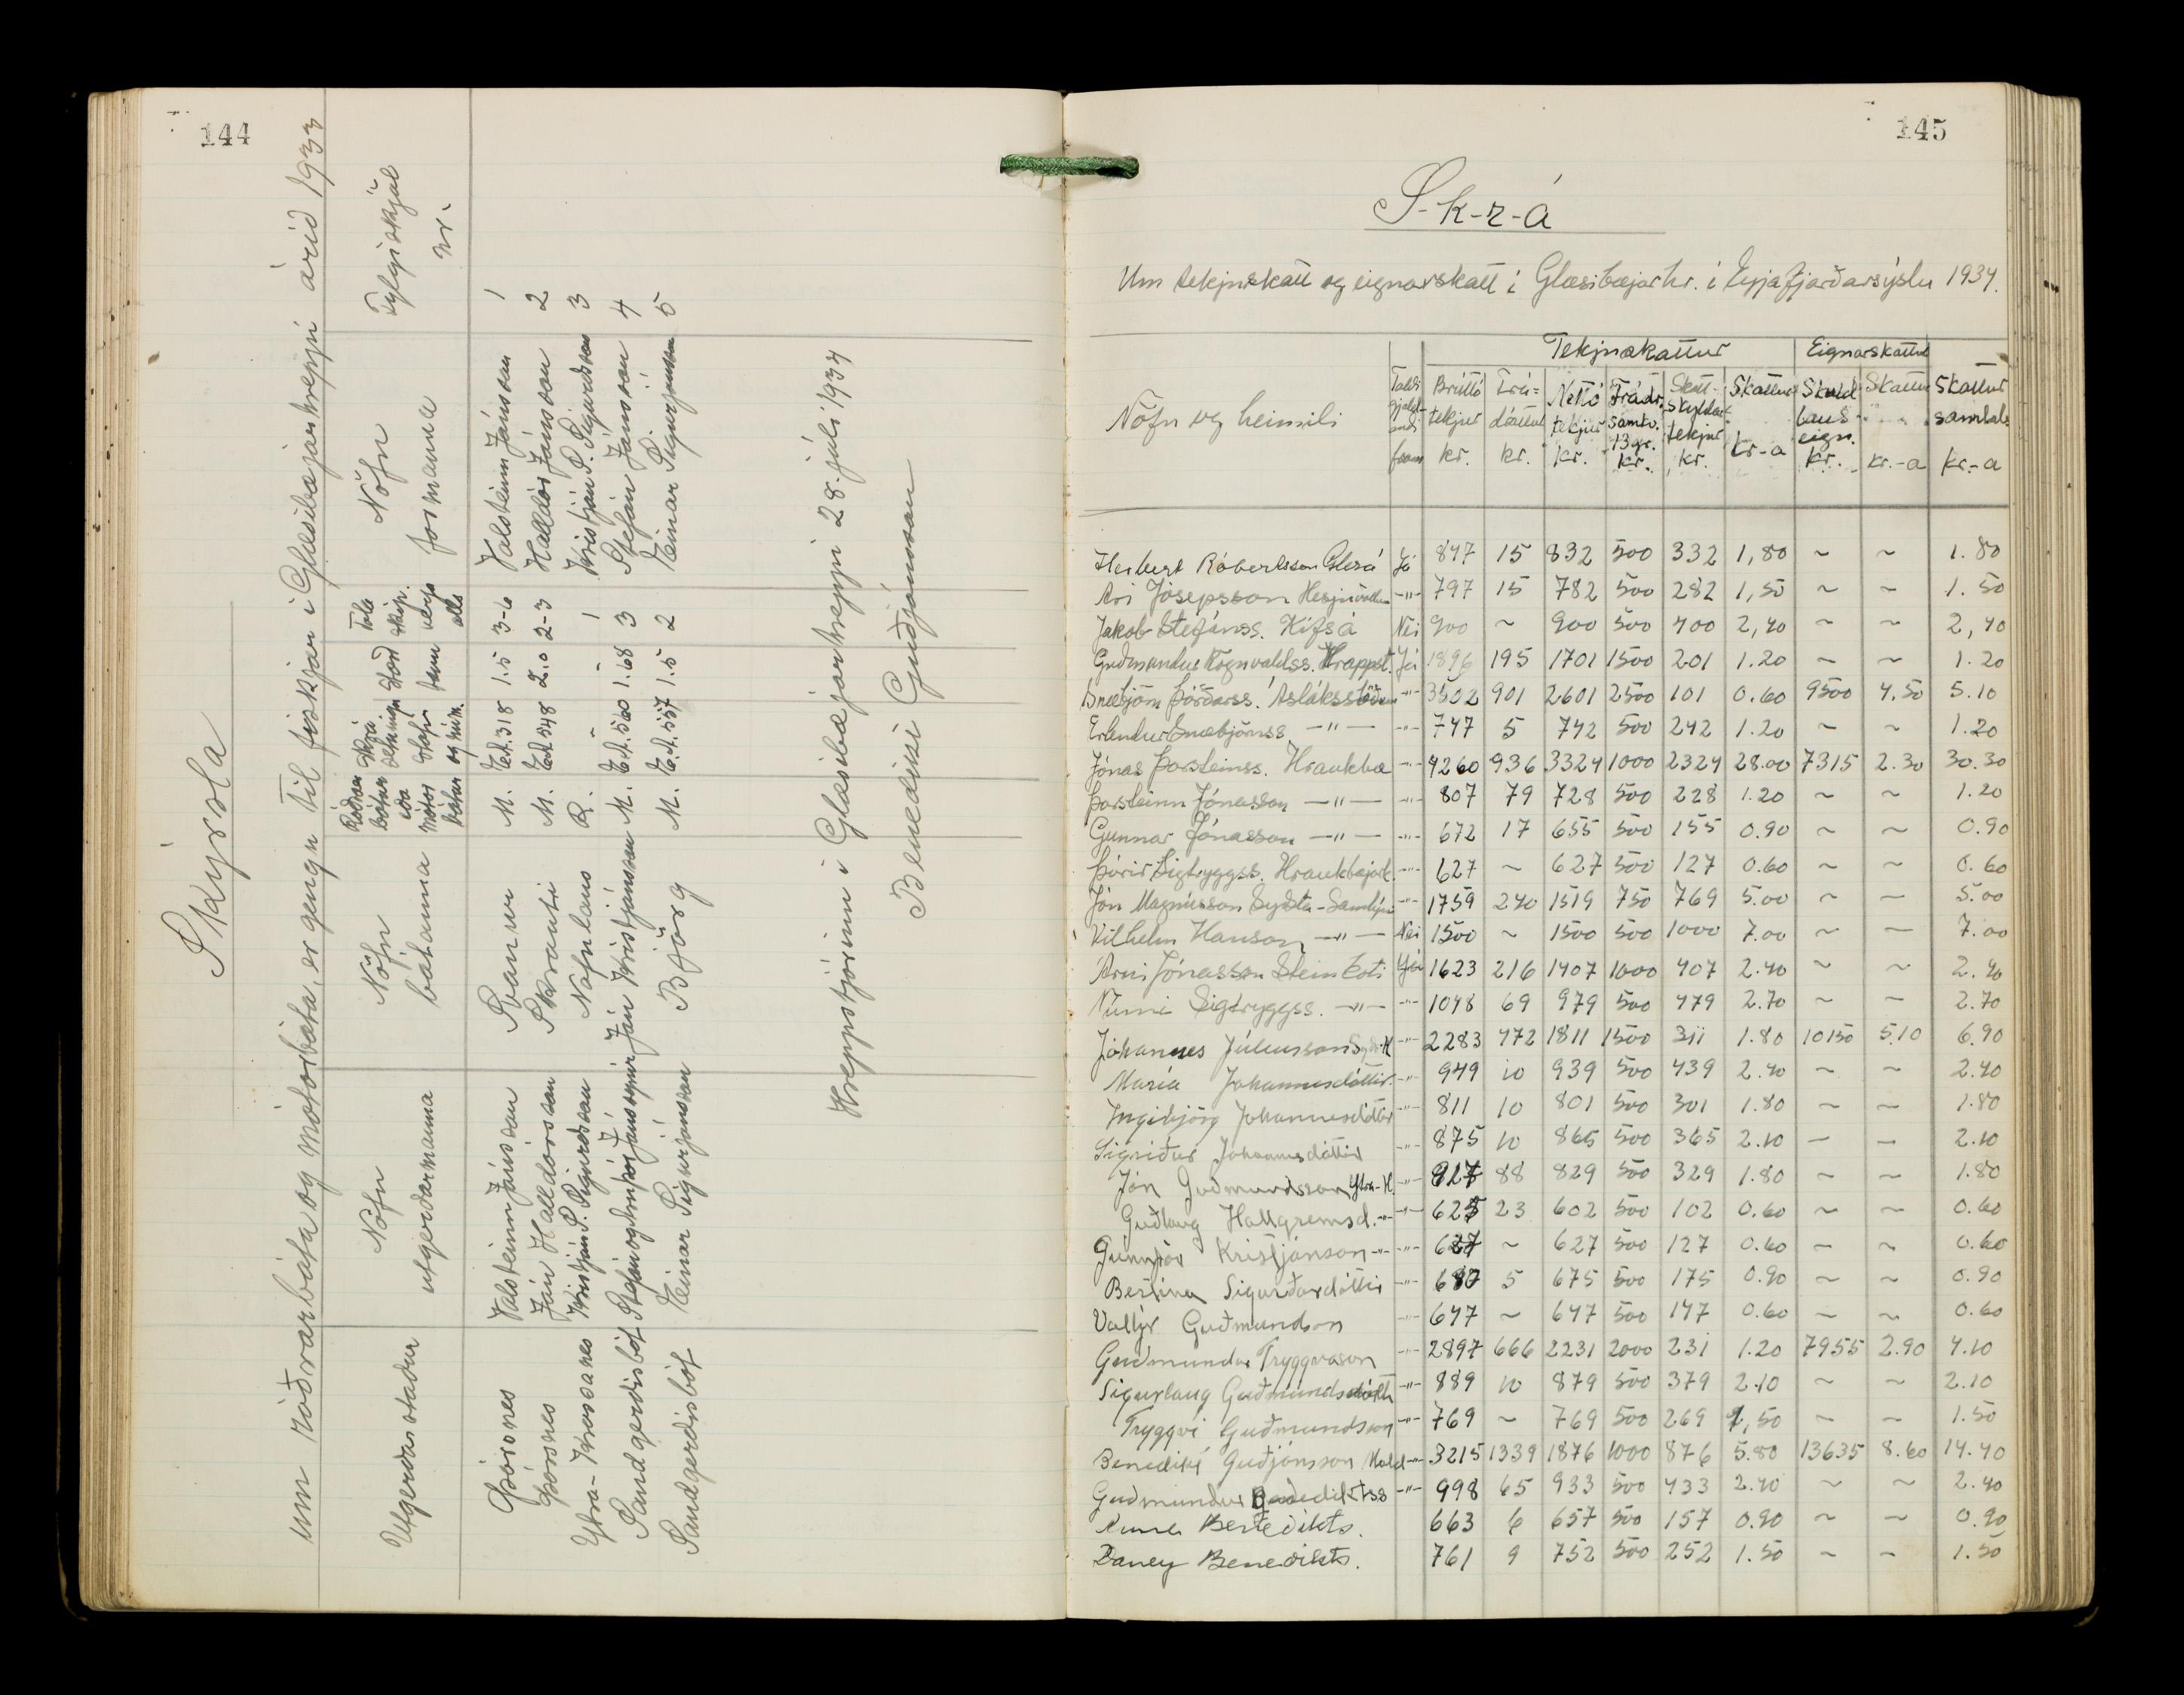 144
Skýrsla
um róðrarbáta og mótorbáta, er gengu til fiskjar í Glæsibæjarhreppi árið 1933
Útgerðarstaður | Nöfn útgerðarmanna | Nöfn bátanna | Róðrarbátur eða mótorbátur | Skrásetningarstafir og núm. | Stærð tonn | Tala skipverja alls | Nöfn formanna | Fylgiskjal nr.
Þórsnes | Valsteinn Jónsson | Svanur | M. | E.A. 318 | 1.5 | 3-6 | Valsteinn Jónsson | 1
Þórsnes | Jón Halldórsson | Skrauti | M. | E.A. 548 | 2.0 | 2-3 | Halldór Jónsson | 2
Ytra-Krossanes | Kristján S. Sigurdsson | Nafnlaus | R. | - | - | 1 | Kristján S. Sigurdsson | 3
Sandgerdisbót | Stefán og Jónssynir | Jón Kristjánsson | M. | E.A. 560 | 1.68 | 3 | Stefán Jónsson | 4
Sandgerdisbót | Steinar Sigurjónsson | Björg | M. | E.A. 557 | 1.5 | 2 | Steinar Sigurjónsson | 5
Hreppstjórinn í Glæsibæjarhreppi 28. júlí 1934
Benedikt Guðjónsson
145
S-k-r-á
Um tekjuskatt og eignarskatt í Glæsibæjarhr. í Eyjafjarðarsýslu 1934.
Tekjuskattur | Eignarskattur
Nöfn og heimili | Taldi gjaldandi fram | Brúttó tekjur kr. | Frádráttur kr. | Nettó tekjur kr. | Frádr. samkv. 13 gr. kr. | Skattskyldar tekjur kr. | Skattur kr-a | Skuldlaus eign. kr. | Skattur kr.-a | Skattur samtals kr.-a
Herbert Róbertsson Glerá | Já | 847 | 15 | 832 | 500 | 332 | 1,80 | ~ | ~ | 1.80
Ari Jósepsson | -"- | 797 | 15 | 782 | 500 | 282 | 1,50 | ~ | ~ | 1.50
Jakob Stefánss. Kífsá | Nei | 900 | ~ | 900 | 500 | 400 | 2,40 | ~ | ~ | 2,40
Guðmundur Rögnvaldss. Hrappst. | Já | 1896 | 195 | 1701 | 1500 | 201 | 1.20 | ~ | ~ | 1.20
Snæbjörn Þórðarss. Ásláksstöðum | -"- | 3502 | 901 | 2601 | 2500 | 101 | 0.60 | 9500 | 4.50 | 5.10
Erlendur Snæbjörnss. -"- | -"- | 747 | 5 | 742 | 500 | 242 | 1.20 | ~ | ~ | 1.20
Jónas Þorsteinss. Hraukbæ | -"- | 4260 | 936 | 3324 | 1000 | 2324 | 28.00 | 7315 | 2.30 | 30.30
Þorsteinn Jónasson -"- | -"- | 807 | 79 | 728 | 500 | 228 | 1.20 | ~ | ~ | 1.20
Gunnar Jónasson -"- | -"- | 672 | 17 | 655 | 500 | 155 | 0.90 | ~ | ~ | 0.90
Þórir Sigtryggss. Hraukbæjark. | -"- | 627 | ~ | 627 | 500 | 127 | 0.60 | ~ | ~ | 0.60
Jón Magnússon Syðsta-Samtýni | -"- | 1759 | 240 | 1519 | 750 | 769 | 5.00 | ~ | ~ | 5.00
Vilhelm Hanson -"- | Nei | 1500 | ~ | 1500 | 500 | 1000 | 7.00 | ~ | ~ | 7.00
Árni Jónasson Steinkoti | Já | 1623 | 216 | 1407 | 1000 | 407 | 2.40 | ~ | ~ | 2.40
Númi Sigtryggss. -"- | -"- | 1048 | 69 | 979 | 500 | 479 | 2.70 | ~ | ~ | 2.70
Jóhannes Júlíusson Syðr-K | -"- | 2283 | 472 | 1811 | 1500 | 311 | 1.80 | 10150 | 5.10 | 6.90
María Jóhannesdóttir | -"- | 949 | 10 | 939 | 500 | 439 | 2.40 | ~ | ~ | 2.40
Ingibjörg Jóhannesdóttir | -"- | 811 | 10 | 801 | 500 | 301 | 1.80 | ~ | ~ | 1.80
Sigríður Jóhannesdóttir | -"- | 875 | 10 | 865 | 500 | 365 | 2.10 | ~ | ~ | 2.10
Jón Guðmundsson Ytra-K. | -"- | 917 | 88 | 829 | 500 | 329 | 1.80 | ~ | ~ | 1.80
Guðlaug Hallgrímsd. -"- | -"- | 625 | 23 | 602 | 500 | 102 | 0.60 | ~ | ~ | 0.60
Gunnþór Kristjánson -"- | -"- | 627 | ~ | 627 | 500 | 127 | 0.60 | ~ | ~ | 0.60
Berlína Sigurðardóttir | -"- | 680 | 5 | 675 | 500 | 175 | 0.90 | ~ | ~ | 0.90
Valtýr Guðmundson | -"- | 647 | ~ | 647 | 500 | 147 | 0.60 | ~ | ~ | 0.60
Guðmundur Tryggvason | -"- | 2897 | 666 | 2231 | 2000 | 231 | 1.20 | 7955 | 2.90 | 4.10
Sigurlaug Guðmundsdóttir | -"- | 889 | 10 | 879 | 500 | 379 | 2.10 | ~ | ~ | 2.10
Tryggvi Guðmundsson | -"- | 769 | ~ | 769 | 500 | 269 | 1,50 | ~ | ~ | 1.50
Benedikt Guðjónsson Mold | -"- | 3215 | 1339 | 1876 | 1000 | 876 | 5.80 | 13635 | 8.60 | 14.40
Guðmundur Benediktss | -"- | 998 | 65 | 933 | 500 | 433 | 2.40 | ~ | ~ | 2.40
Benedikts. | 663 | 6 | 657 | 500 | 157 | 0.90 | ~ | ~ | 0.90
Daney Benedikts. | 761 | 9 | 752 | 500 | 252 | 1.50 | ~ | ~ | 1.50